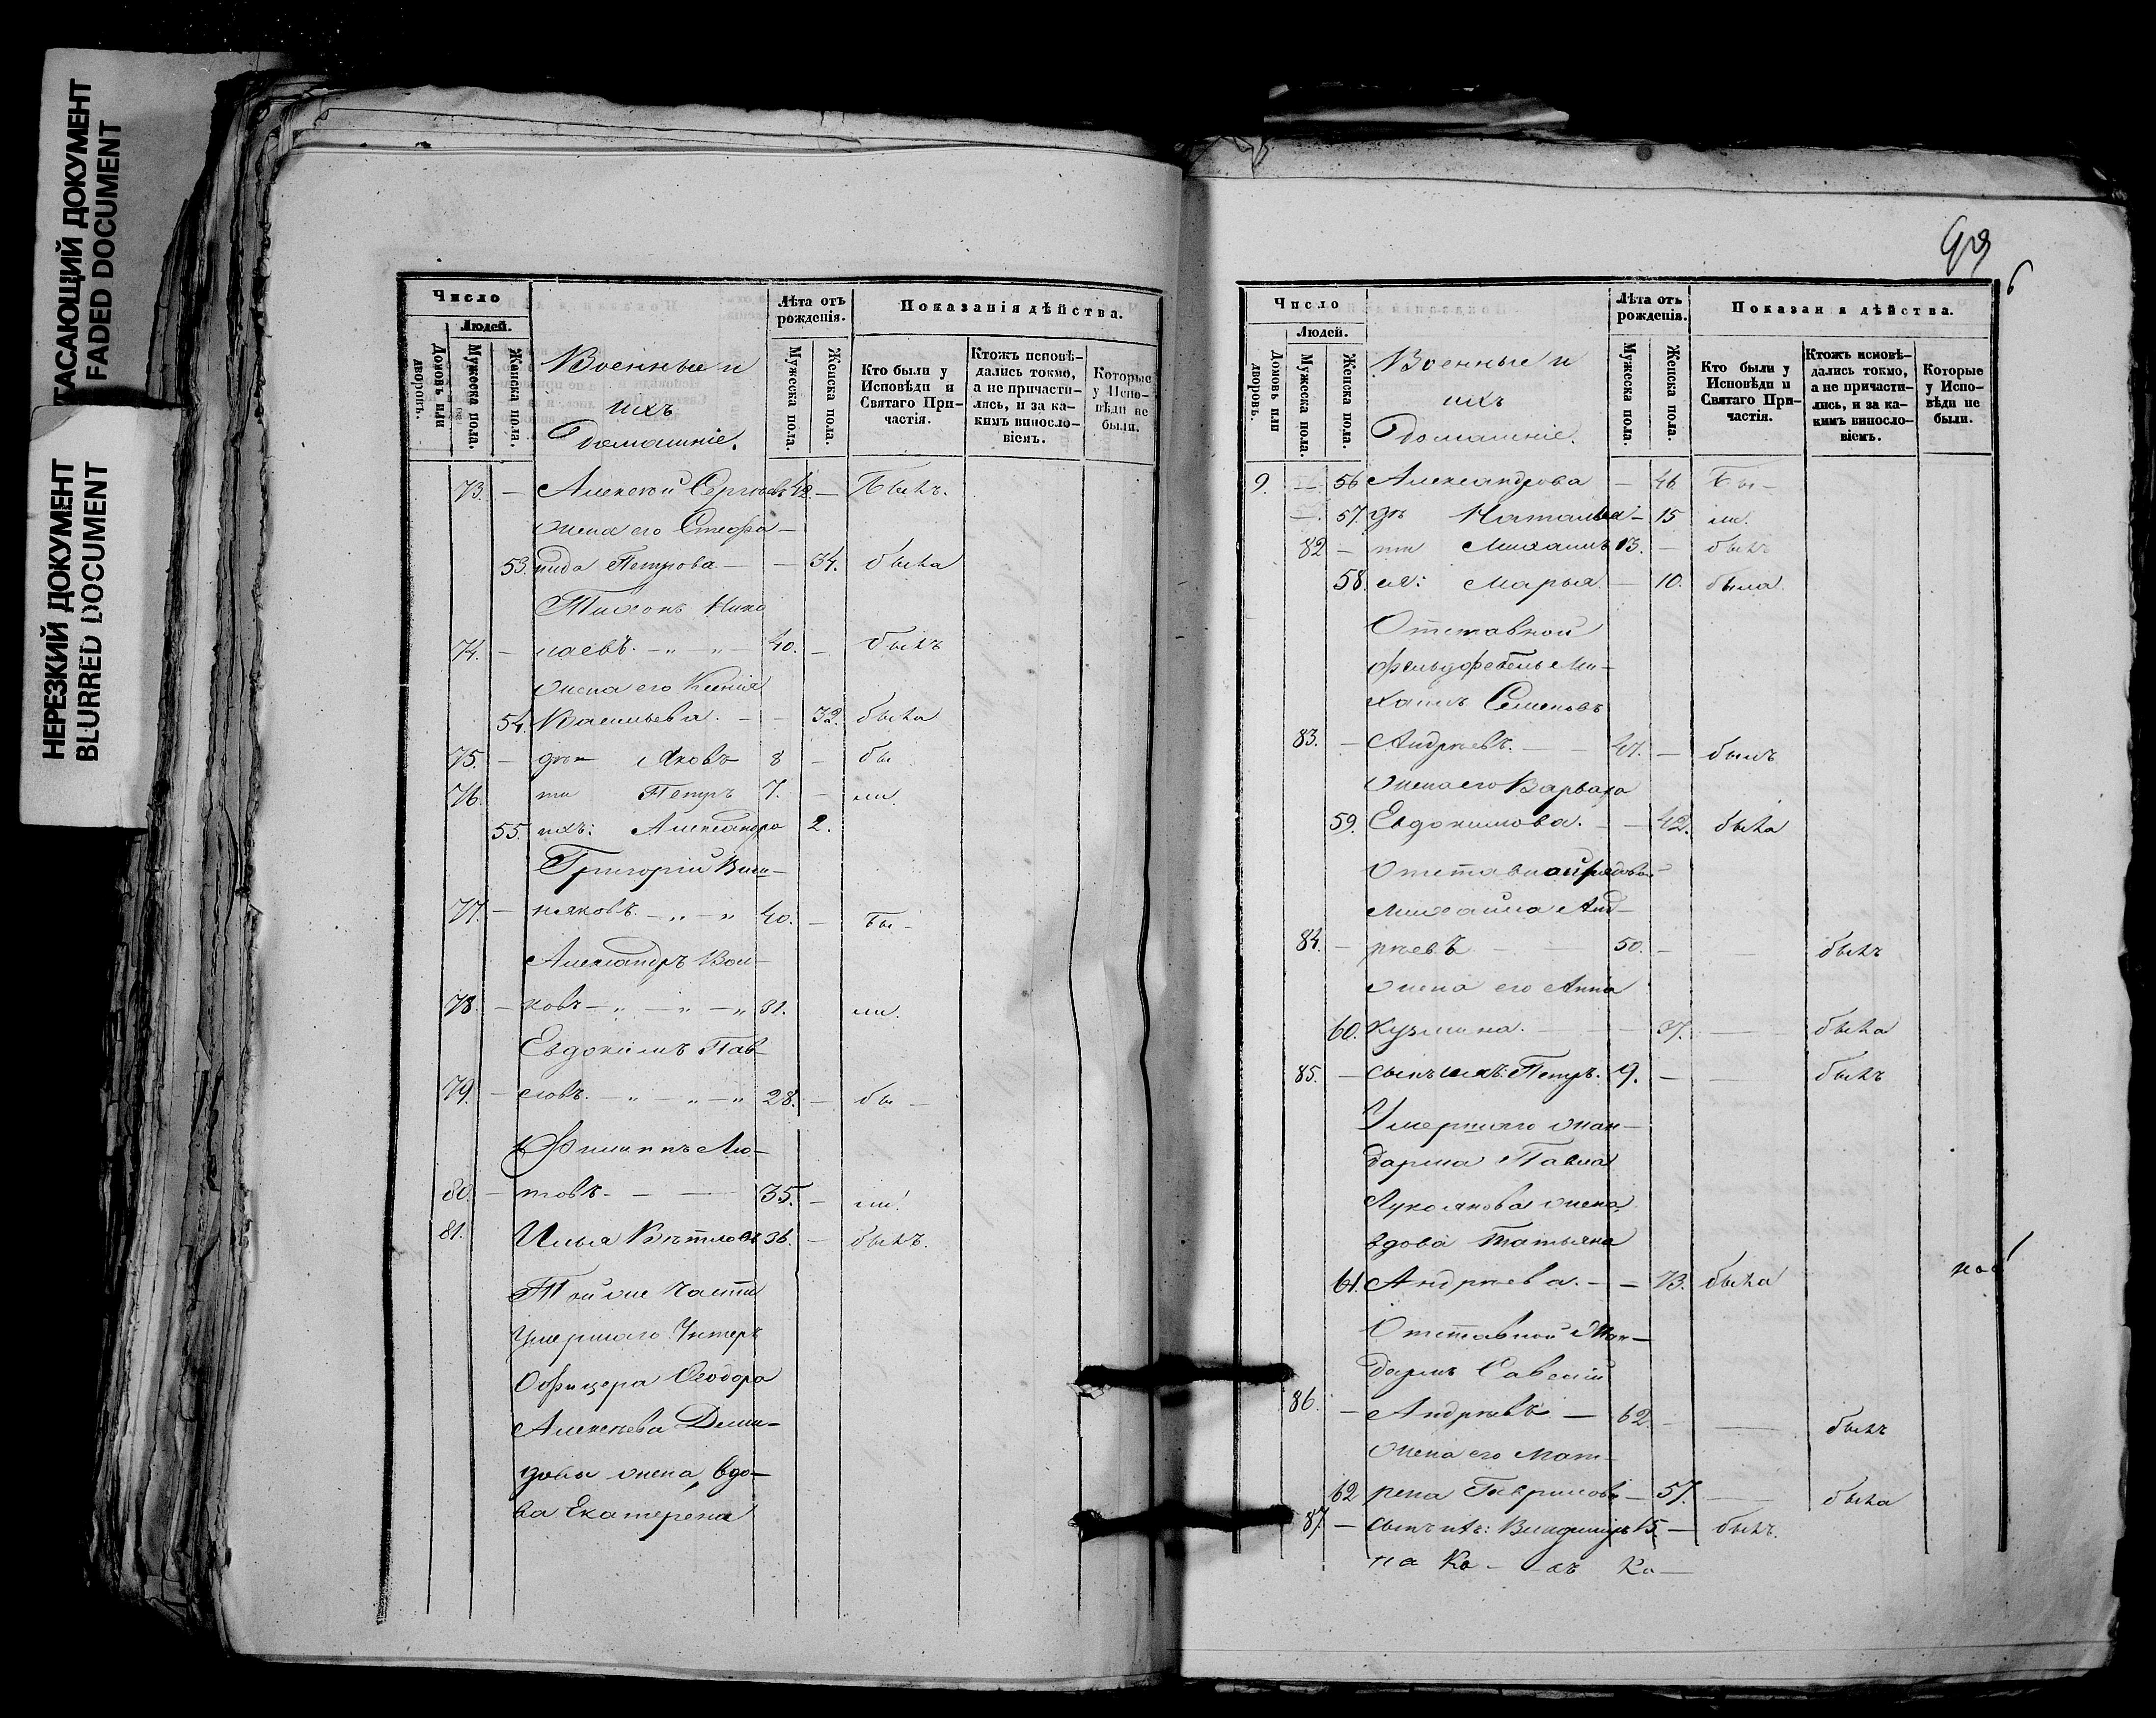 ГАСАЮЩИЙ ДОКУМЕНТ
FADED DOCUMENT
НЕРЕЗКИЙ ДОКУМЕНТ
BLURRED DOCUMENT
Число
Людей.
Домовъ или дворовъ.
Мужеска пола.
Женска пола.
Военные и
ихъ
Домашніе.
Лѣта отъ рожденія.
Мужеска пола.
Женска пола.
Показанія дѣйства.
Кто были у Исповѣди и Святаго Причастія.
Ктожъ исповѣдались токмо, а не причастились, и за какимъ винословіемъ.
Которые у Исповѣди не были.
73. — Алексѣй Сергѣевъ 42 — Былъ.
Жена его Стефа-
53. нида Петрова — — 34. была
Тихонъ Нико
74. — лаевъ. — „ — „ — 40. — былъ
Жена его Ксенія
54. Васильева. — — 32. была
75. — дѣ Яковъ 8 — бы
76. ти Петръ 7. — ли.
55. ихъ: Александра 2.
Григорій Виш-
77. — няковъ. — „ — „ 40. — бы —
Александръ Вол-
78. — ковъ — „ — „ — „ 31. ли.
Евдокимъ Пав-
79. — ловъ. — „ — „ — „ 28. — бы —
Филиппъ Лю-
80. — товъ. — — 35. — ли.
81. Илья Вѣтловъ 36. — былъ.
Той же части
Умершаго Унтеръ
Офицера Ѳеодора
Алексѣева Деми-
дова жена, вдо-
ва Екатерена
99
6
Число
Людей.
Домовъ или дворовъ.
Мужеска пола.
Женска пола.
Военные и
ихъ
Домашніе.
Лѣта отъ рожденія.
Мужеска пола.
Женска пола.
Показан я дѣйства.
Кто были у Исповѣди и Святаго Причастія.
Ктожъ исповѣдались токмо, а не причастились, и за какимъ винословіемъ.
Которые у Исповѣди не были.
9. — 56 Александрова — 46 Бы —
— 57. дѣ Наталья — 15 ли.
82 — ти Михаилъ 13. — былъ
58. ея: Марья — 10. была.
Отставной
фельдфебель Ми-
хаилъ Семеновъ
83. — Андреевъ. — — 47. — былъ
Жена его Варвара
59. Евдокимова. — — 42. была
Отставной рядовой
Михайла Анд-
84. — реевъ — — 50. — — былъ
Жена его Анна
60. Кузмина. — — 37. — была
85. — Сынъ ихъ: Петръ. 9. — — былъ
Умершаго жан-
дарма Павла
Лукоянова жена
вдова Татьяна
61. Андреева. — — 73. была
Отставной Жан-
дармъ Савелій
86. — Андреевъ — 62. — — былъ
Жена его Мат-
62 рена Гаврилова — 57. — была
87. — Сынъ ихъ: Владиміръ 15. — былъ.